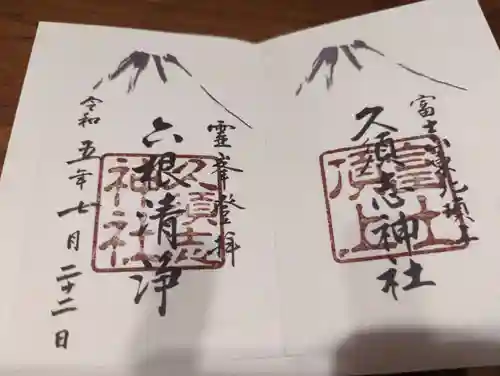 富士山東北頂上
久須志神社
富士山頂上
霊峯登拝
六根清浄
久須志神社
令和五年七月二十二日